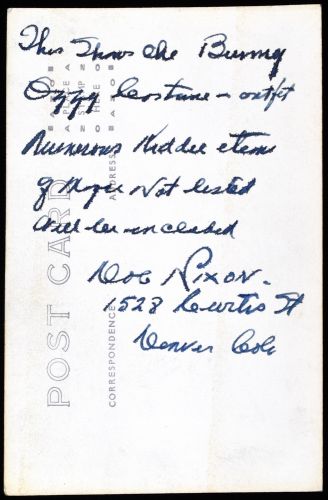 This Shows the Bunny
Ozzy Costume – outfit
Numerous Kiddie items
of Magic Not listed
will be included
Doc Nixon.
1528 Curtis St
Denver Colo
POST CARD
CORRESPONDENCE
ADDRESS
PLACE
STAMP
HERE